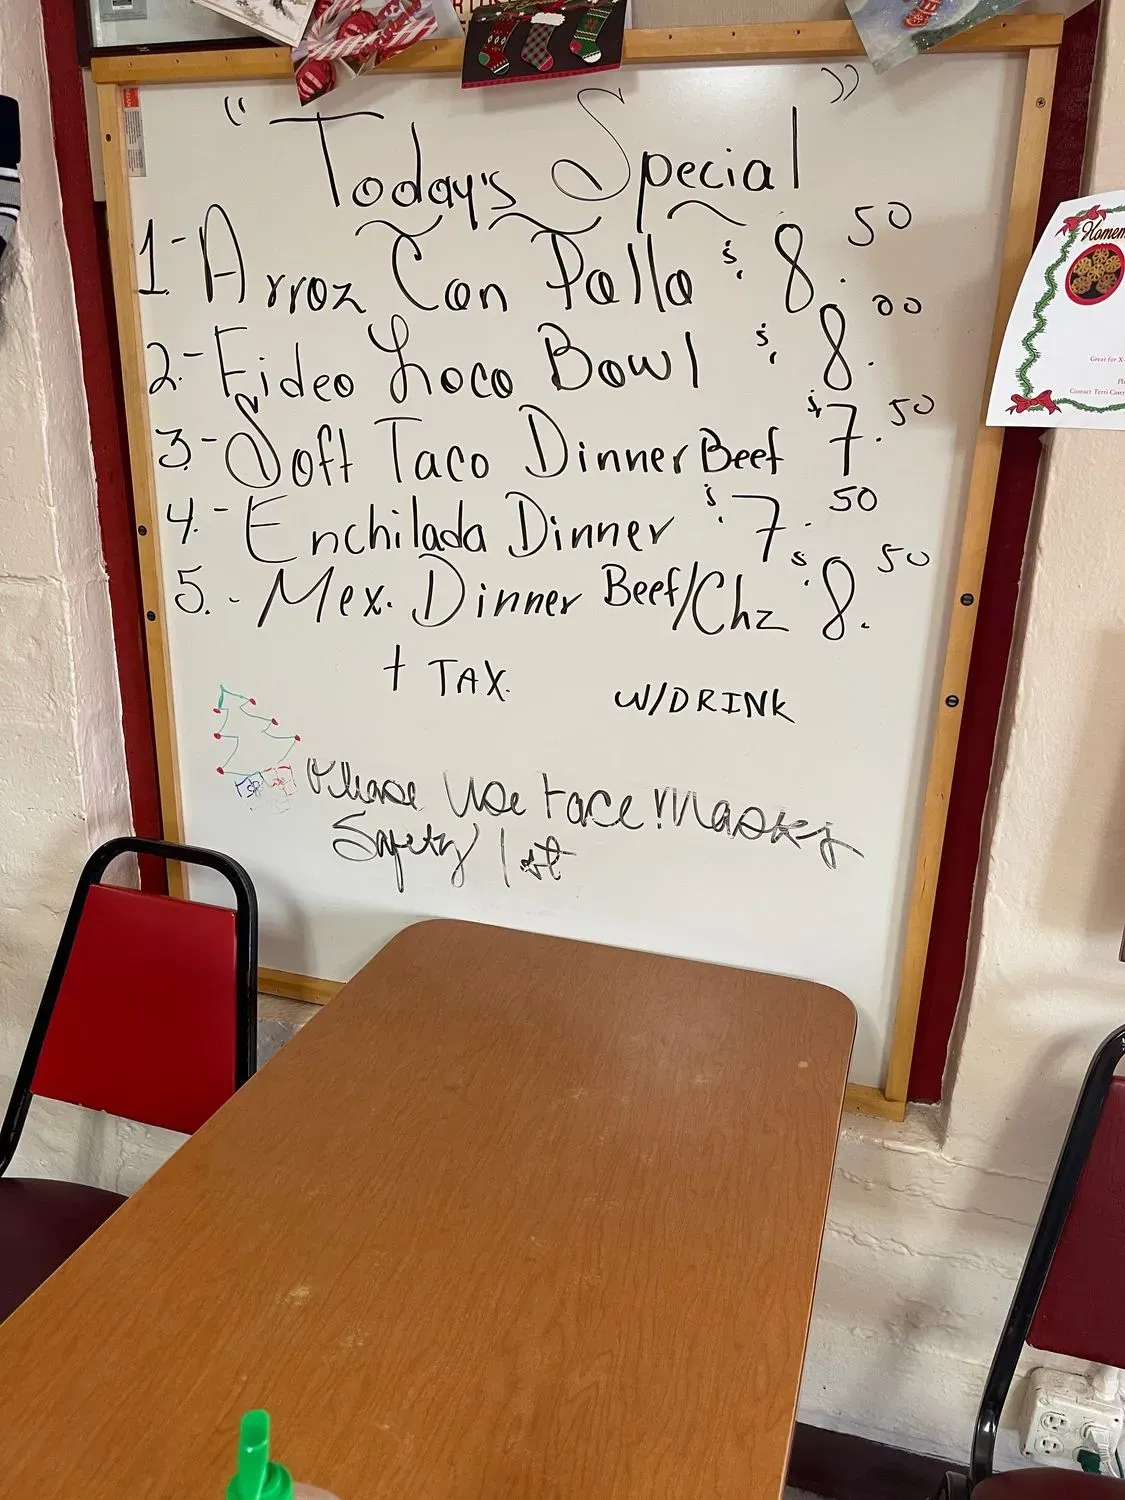 "Today's Special"
1-Arroz Con Pollo $8.50
2-Fideo Loco Bowl $8.00
3-Soft Taco Dinner Beef $7.50
4.-Enchilada Dinner $7.50
5.-Mex. Dinner Beef/Chz $8.50
+ TAX. W/DRINK
Please Use Face Masks
Safety 1st
Homem
Great for X-
Pl
Contact Terri Cast